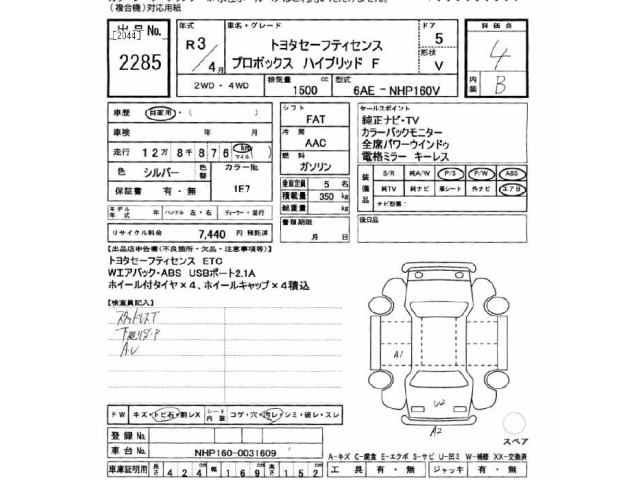 (複合機)対応用紙
出品No.
[2044]
2285
年式
R3/4月
車名・グレード
トヨタセーフティセンス
プロボックス ハイブリッド F
ドア
5
形状
V
評価点
4
内装
B
2WD・4WD
排気量
1500 cc
型式
6AE-NHP160V
車歴 自家用・( )
車検 年 月
走行 12万8千876 km マイル
色 シルバー 色替 カラーNo. 1E7
保証書 有・無
モデル年式 年 ハンドル 左・右 ディーラー・並行
リサイクル料金 7,440 円 預託済
シフト
FAT
冷房
AAC
燃料
ガソリン
乗車定員 5 名
積載量 350 kg
総重量 kg
書類期限
月 日
セールスポイント
純正ナビ・TV
カラーバックモニター
全席パワーウインドゥ
電格ミラー キーレス
装備品
S/R 純A/W P/S P/W ABS
純TV 純ナビ 革シート 外ナビ エアB
ナビ型番:
後日品
【出品店申告欄(不良箇所・欠品・注意事項等)】
トヨタセーフティセンス ETC
Wエアバック・ABS USBポート2.1A
ホイール付タイヤ×4、ホイールキャップ×4積込
【検査員記入】
A1
U2
A2
スペア
FW キズ・トビ石・割レX シート内装 コゲ・穴・汚レ・シミ・破レ・スレ
登録No.
車台No. NHP160-0031609
A-キズ C-腐食 E-エクボ S-サビ U-凹ミ W-補修 XX-交換済
車庫証明用 長さ 424 cm 幅 169 cm 高さ 152 cm
工具 有・無 ジャッキ 有・無